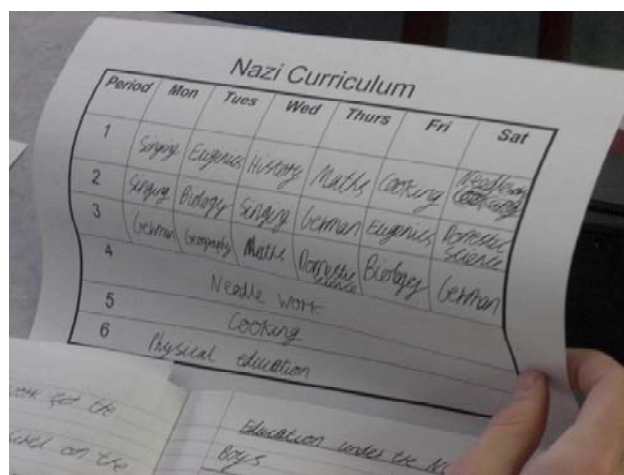 Nazi Curriculum
Period Mon Tues Wed Thurs Fri Sat
1 Singing Eugenics History Maths Cooking Needlework
2 Singing Biology Singing German Eugenics Domestic science
3 German Geography Maths Domestic science Biology German
4 Needle work
5 Cooking
6 Physical education
on the
Education under the
Boys